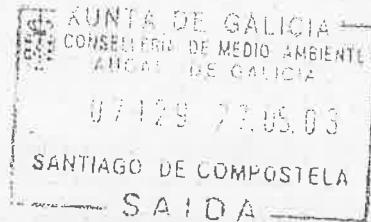 XUNTA DE GALICIA
CONSELLERIA DE MEDIO AMBIENTE
DE GALICIA
07129 22.05.03
SANTIAGO DE COMPOSTELA
SAIDA